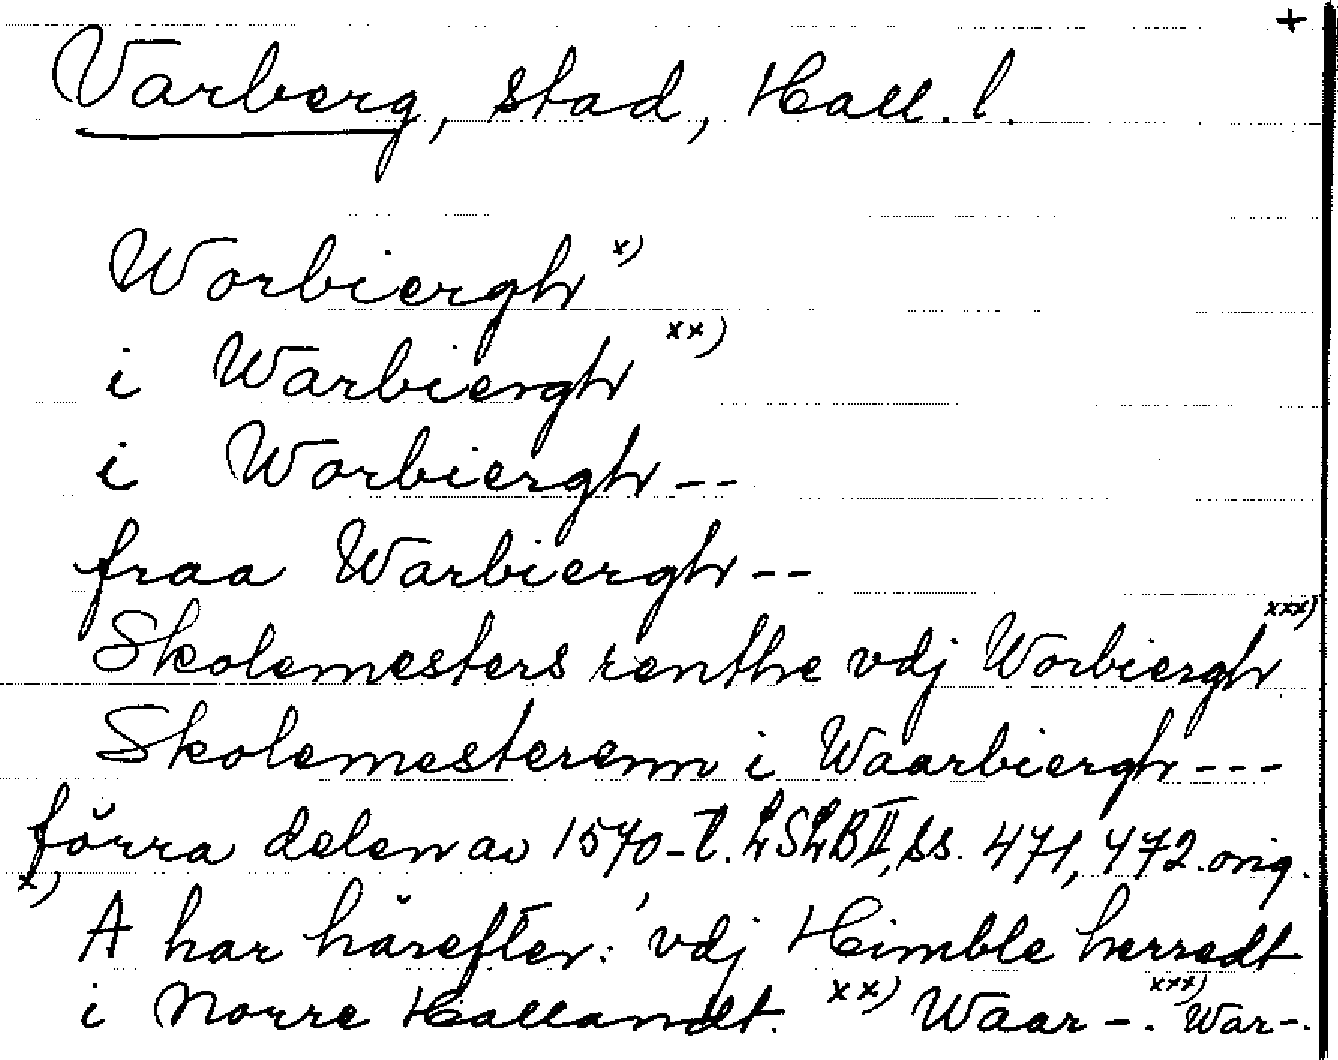 +
Varberg, stad, Hall. l.
Worbiergh x)
i Warbiergh xx)
i Worbiergh --
fraa Warbiergh --
Skolemesters renthe vdj Worbiergh xxx)
Skolemesterenn i Waarbiergh ---
förra delen av 1570-t. LSLB II, ss. 471, 472. orig.
x) A har härefter: 'vdj Himble herredt
i Norre Hallandt. xx) Waar-. xxx) War-.